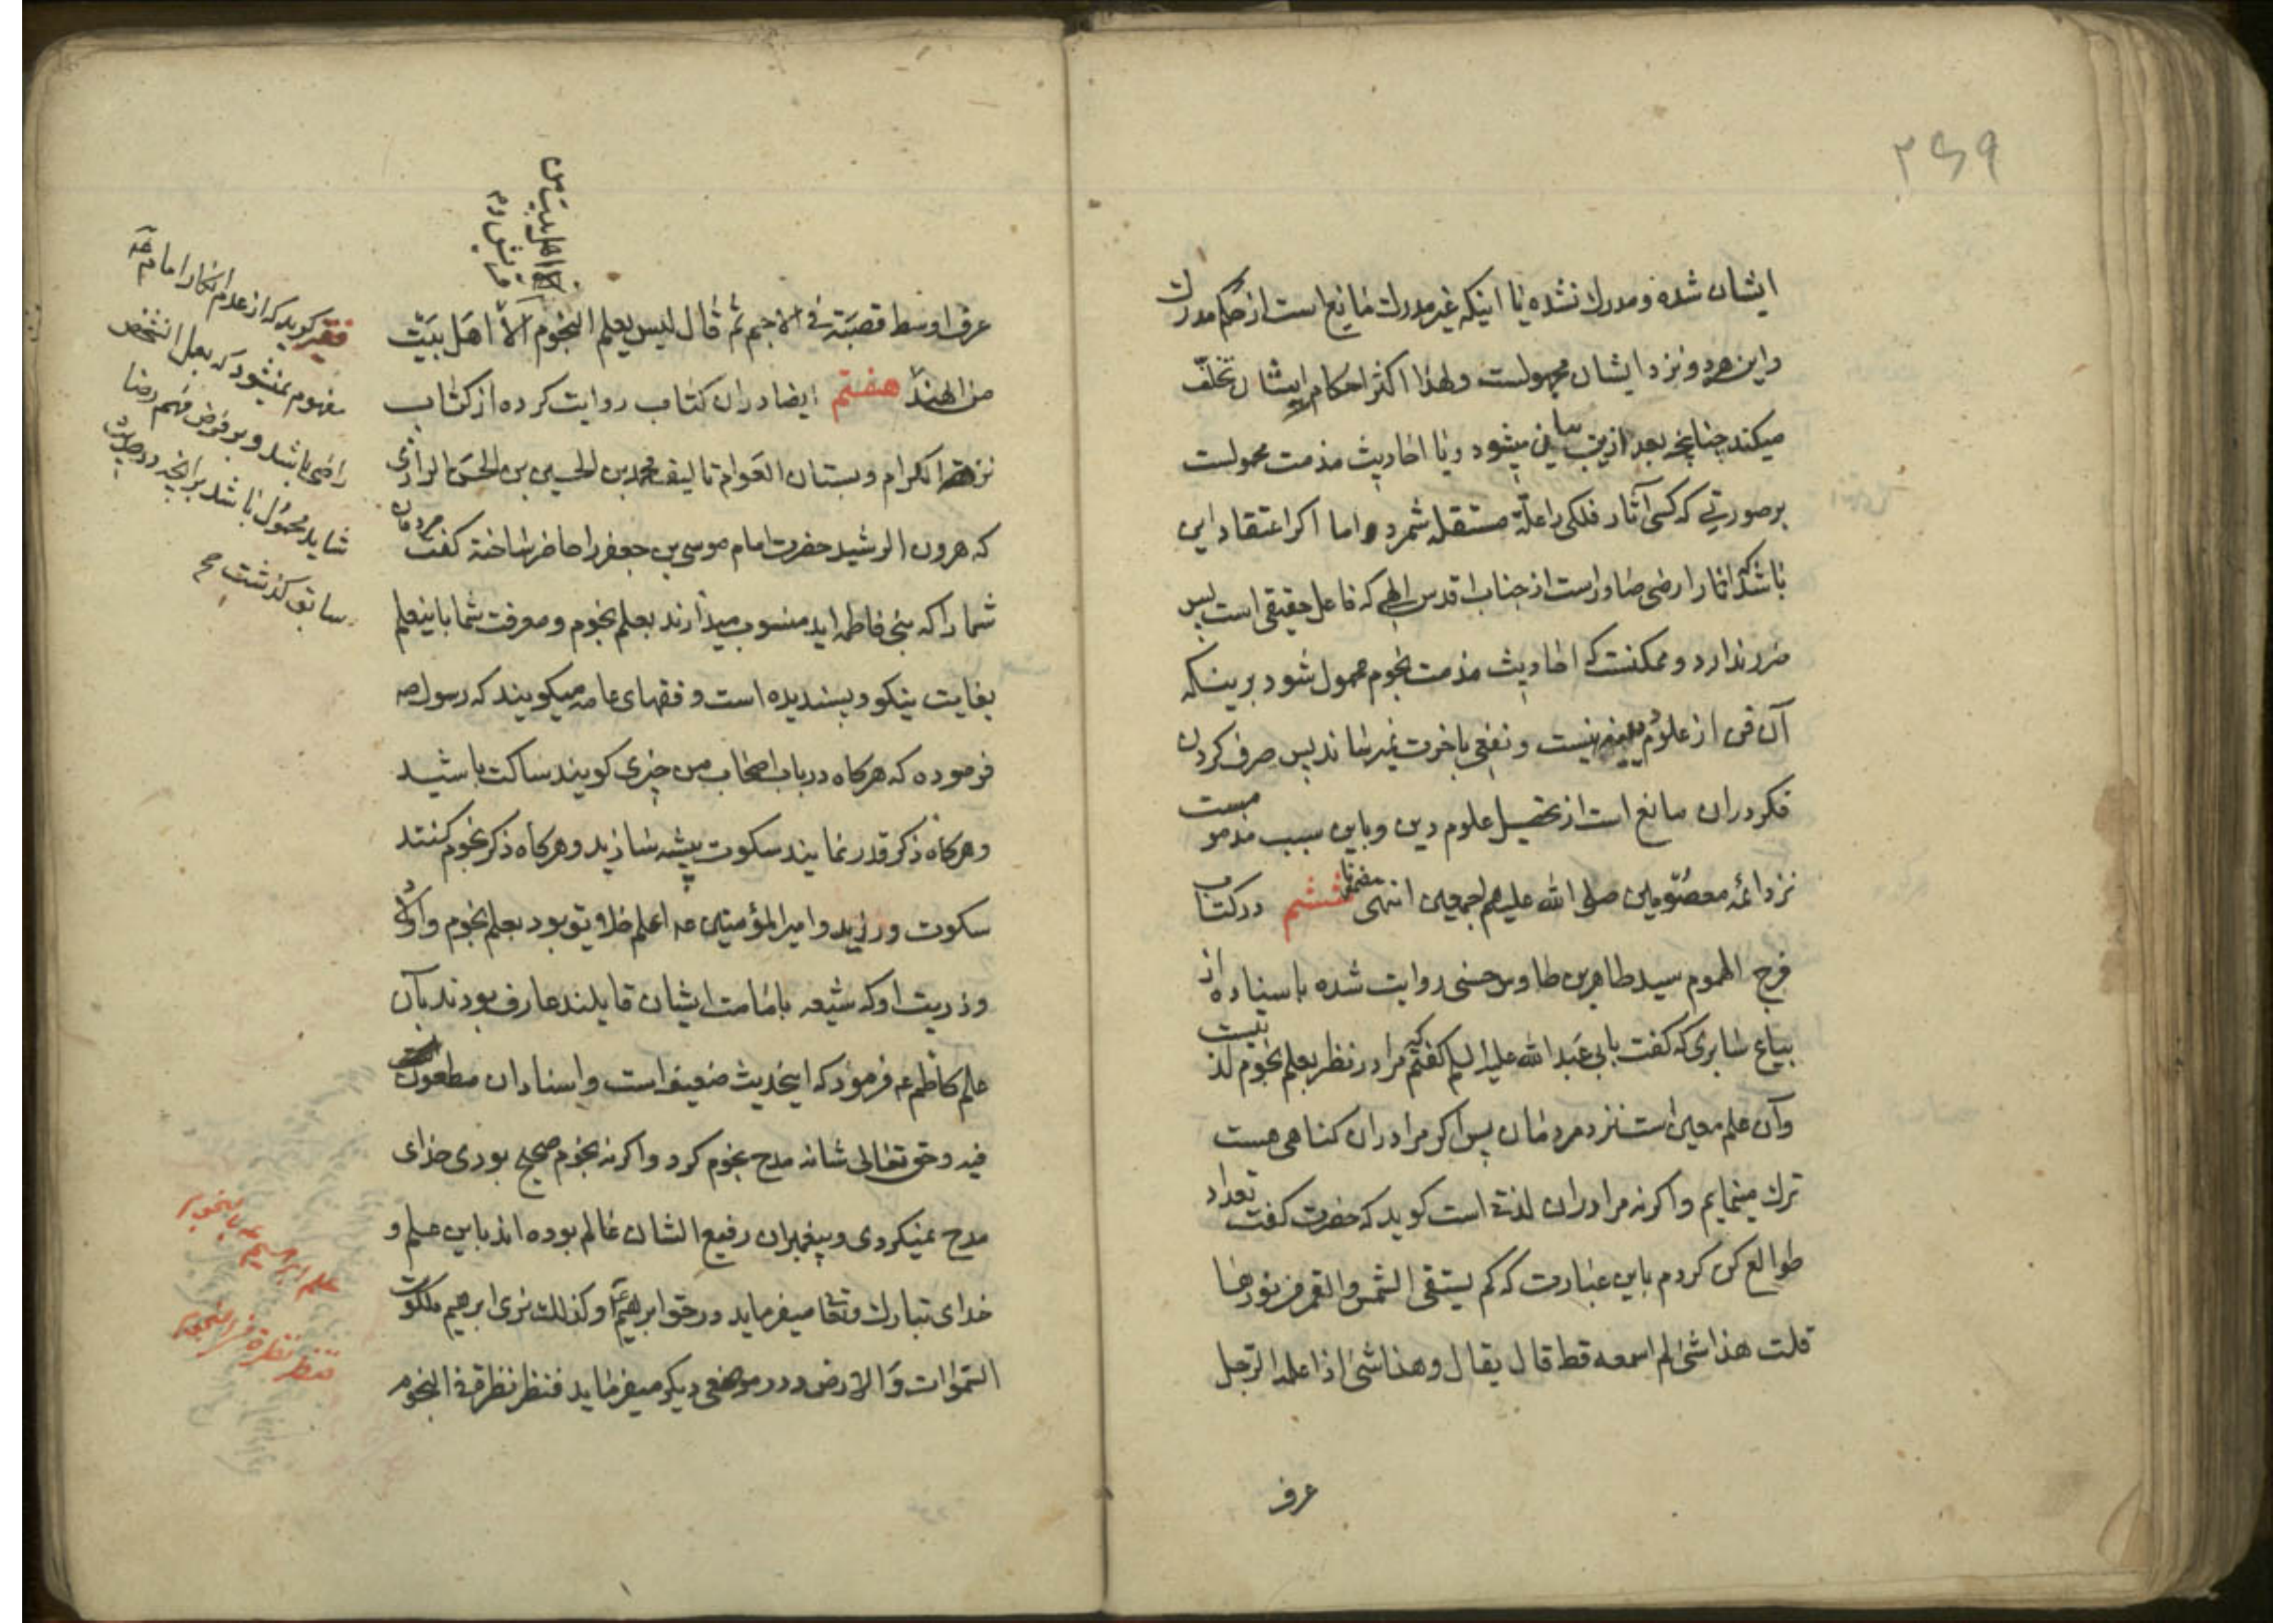 ۲۶۹
ایشان شده و مدرک نشده یا اینکه غیر مدرک مانع است از حکم مدرک
و این هر دو نزد ایشان مجهولست و لهذا اکثر احکام ایشان تخلّف
میکند چنانچه بعد ازین بیان میشود و یا احادیث مذمت محمولست
بر صورتی که کسی آثار فلکی را علّة مستقله شمرد و اما اکر اعتقاد این
باشد که اثار ارضی صادر است از جناب اقدس الهی که فاعل حقیقی است پس
ضرر ندارد و ممکنست که احادیث مذمت نجوم محمول شود بر ینکه
آن فن از علوم دینیه نیست و نفعی باخرت نمیرساند پس صرف کردن
فکر دران مانع است از تحصیل علوم دین و باین سبب مذموست
نزد ائمه معصومین صلی الله علیهم اجمعین انتهی ششم در کتاب
فرج الهموم سید طاهر بن طاوس حسنی روایت شده باسناده از
بیاع سابری که کفت بابی عبد الله علیه السلم کفتم که مرا در نظر بعلم نجوم لذتیست
و آن علم معین است نزد مردمان پس اکر مرا دران کناهی هست
ترک مینمایم و اکر نه مرا دران لذتی است کوید که حضرت کفت تعداد
طوالع کن کردم باین عبارت که کم یستقی الشمس و القمر من نورها
قلت هذا شئ لم اسمعه قط قال یقال و هذا شئ اذا علمه الرجل
عرف
عرف اوسط قصبَة فی الاجم ثم قال لیس یعلم النجوم الّا اهل بیَت
الا اهل بیت من
قریش و
من الهند هفتم ایضا دران کتاب روایت کرده از کتاب
نزهة الکرام و بستان العَوام تالیف محمد بن الحسین بن الحسن الرازی
که هرون الرشید حضرت امام موسی بن جعفر را حاضر ساخته کفت مردمان
شما را که بنی فاطمه اید منسوب میدارند بعلم نجوم و معرفت شما باینعلم
بغایت نیکو و پسندیده است و فقهای عامه میکویند که رسول صه
فرموده که هرکاه در باب اصحاب من چیزی کویند ساکت باشید
و هرکاه ذکر قدر نمایند سکوت پیشه سازید و هرکاه ذکر نجوم کنند
سکوت ورزید و امیر المؤمنین عه اعلم خلایق بود بعلم نجوم و اولاد
و ذریت او که شیعه بامامت ایشان قایلند عارف بودند بآن
علم کاظم عه فرمود که اینحدیث ضعیف است و اسناد ان مطعون
فیه و حق تعالی شانه مدح نجوم کرد و اکر نه نجوم صحیح بودی خدای
مدح نمیکردی و پیغمبران رفیع الشان عالم بوده اند باین علم و
خدای تبارک و تعا میفرماید در حق ابرهیم و کذلک نری ابرهیم ملکوت
السّموات وَالارض و در موضعی دیکر میفرماید فنظر نظرة فی النجوم
فقیر کوید که از عدم انکار امام
مفهوم نمیشود که بعمل انشخص
راضی باشد و بر فرض فهم رضا
شاید محمول باشد بر انچه در حدیث
سابق کذشت
علم ابرهیم عه بالنجوم
فنظر نظرة فی النجوم